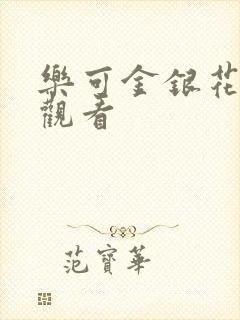 樂可金銀花
觀看
范寶華